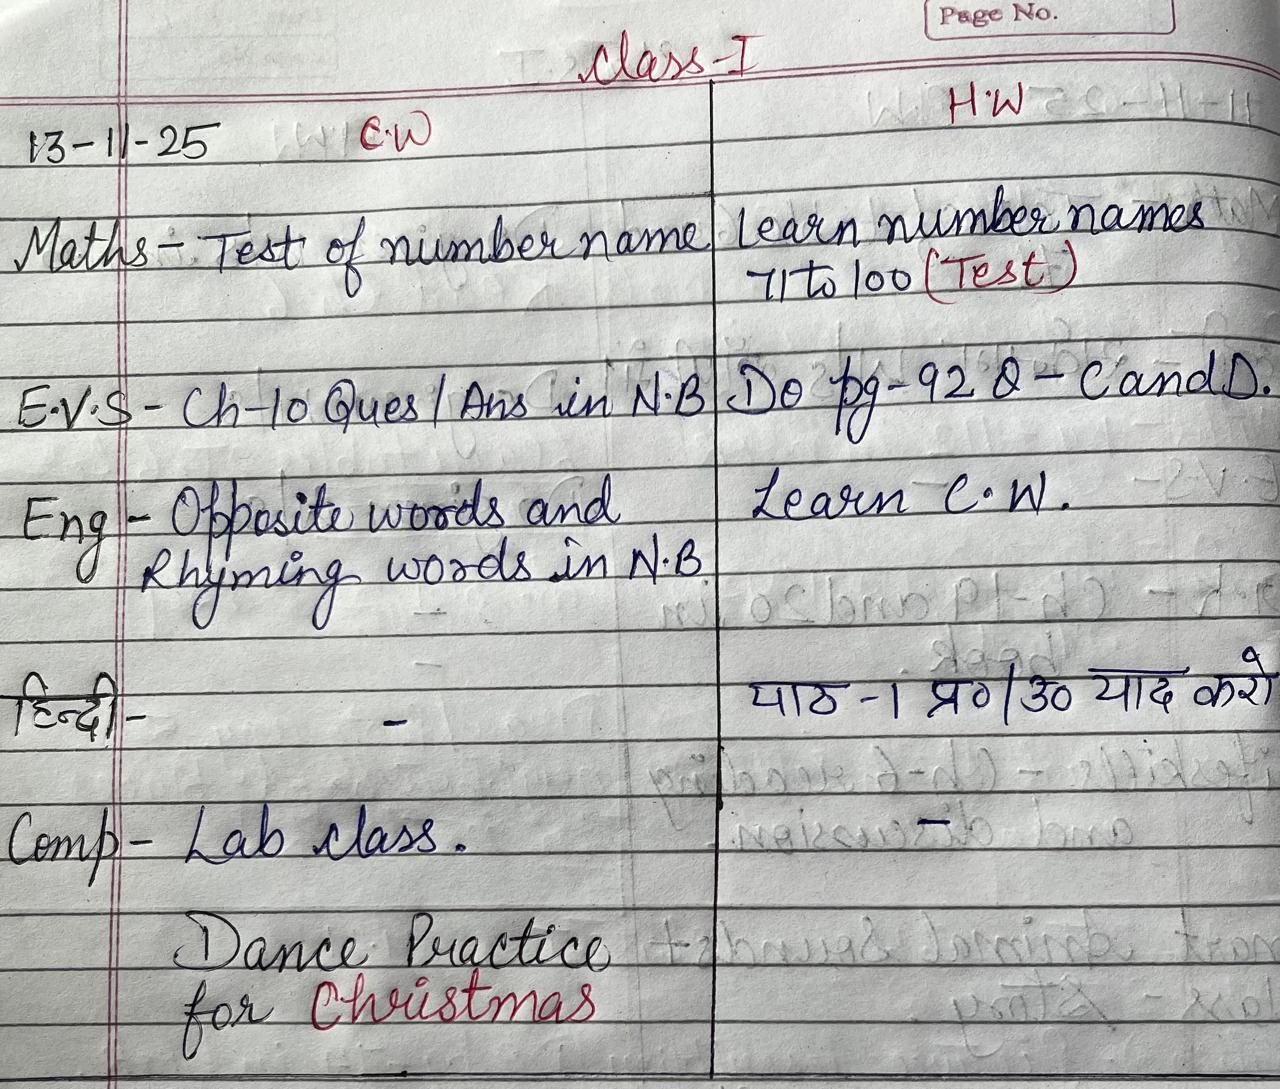 Page No.
Class-I
13-11-25 C.W H.W
Maths - Test of number name Learn number names
71 to 100 (Test)
E.V.S - Ch-10 Ques/Ans in N.B Do pg-92 Q - C and D.
Eng - Opposite words and Learn C.W.
Rhyming words in N.B.
हिन्दी - - पाठ -1 प्र०/उ० याद करो
Comp - Lab class. -
Dance Practice
for Christmas